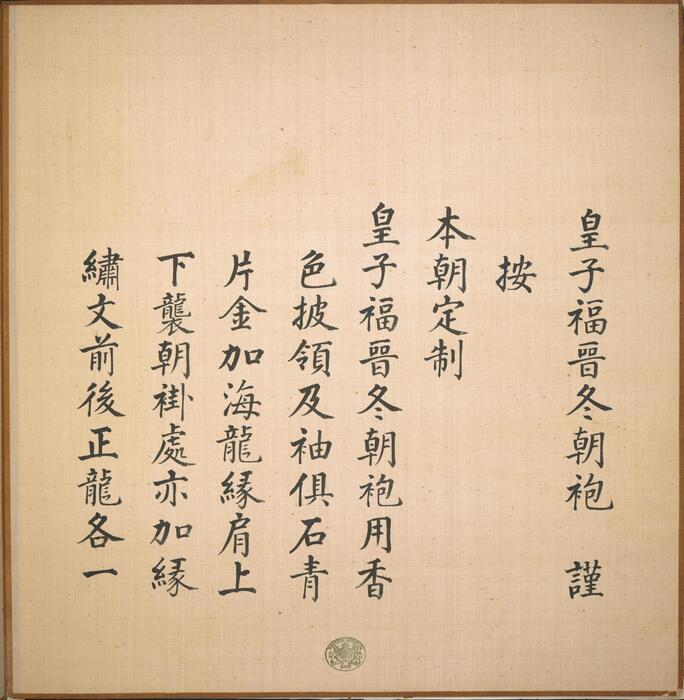 皇子福晉冬朝袍 謹
按
本朝定制
皇子福晉冬朝袍用香
色披領及袖俱石青
片金加海龍緣肩上
下襲朝褂處亦加緣
繡文前後正龍各一